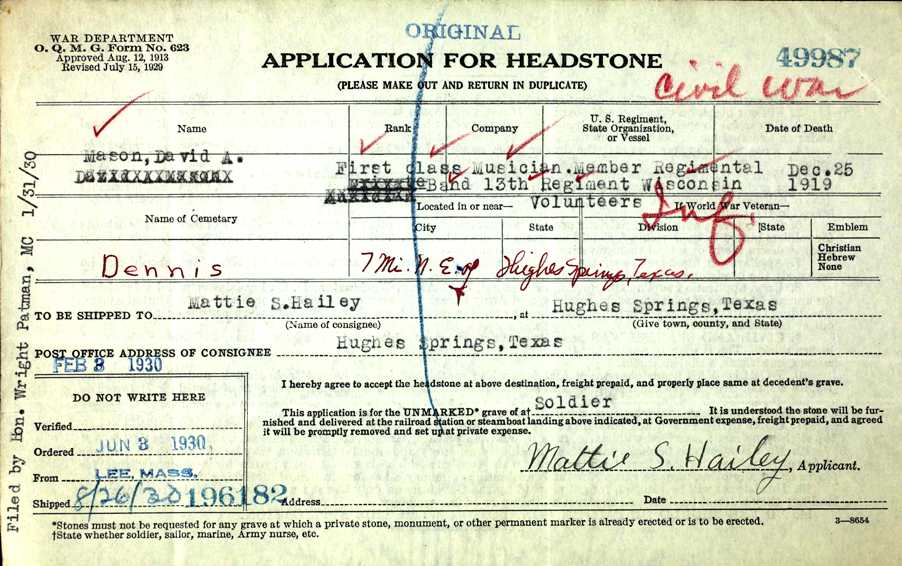 WAR DEPARTMENT
O. Q. M. G. Form No. 623
Approved Aug. 12, 1913
Revised July 15, 1929
ORIGINAL
APPLICATION FOR HEADSTONE
(PLEASE MAKE OUT AND RETURN IN DUPLICATE)
49987
Civil War
Name
Rank
Company
U. S. Regiment,
State Organization,
or Vessel
Date of Death
Mason, David A.
First class Musician.Member Regimental
Band 13th Regiment Wisconsin
Volunteers
Dec.25
1919
Inf.
Name of Cemetary
Located in or near—
City
State
If World War Veteran—
Division
State
Emblem
Christian
Hebrew
None
Dennis
7 Mi. N. E. of Hughes Springs, Texas.
TO BE SHIPPED TO Mattie S.Hailey at Hughes Springs,Texas
(Name of consignee)
(Give town, county, and State)
POST OFFICE ADDRESS OF CONSIGNEE Hughes Springs,Texas
FEB 3 1930
DO NOT WRITE HERE
Verified
Ordered JUN 3 1930
From LEE, MASS.
Shipped 8/26/30 196182
I hereby agree to accept the headstone at above destination, freight prepaid, and properly place same at decedent's grave.
This application is for the UNMARKED* grave of a† Soldier It is understood the stone will be fur-
nished and delivered at the railroad station or steamboat landing above indicated, at Government expense, freight prepaid, and agreed
it will be promptly removed and set up at private expense.
Mattie S. Hailey, Applicant.
Address
Date
*Stones must not be requested for any grave at which a private stone, monument, or other permanent marker is already erected or is to be erected.
†State whether soldier, sailor, marine, Army nurse, etc.
3—8654
Filed by Hon. Wright Patman, MC 1/31/30